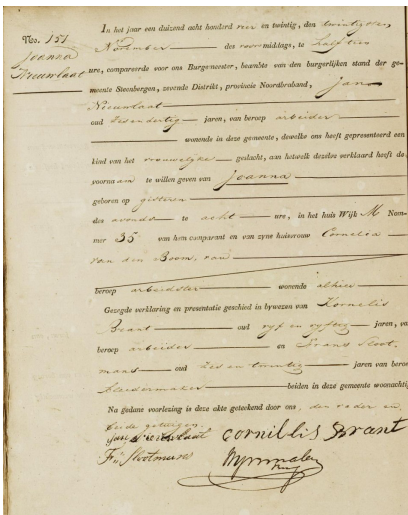 No. 151
Joanna
Nieuwlaat
In het jaar een duizend acht honderd vier en twintig, den twintigsten
November des voormiddags, te half tien
ure, compareerde voor ons Burgemeester, beambte van den burgerlijken stand der ge-
meente Steenbergen, zevende Distrikt, provincie Noordbraband, Jan
Nieuwlaat
oud zesendertig jaren, van beroep arbeider
wonende in deze gemeente, dewelke ons heeft gepresenteerd een
kind van het vrouwelijke geslacht, aan hetwelk dezelve verklaard heeft de
voornaam te willen geven van Joanna
geboren op gisteren
des avonds te acht ure, in het huis Wijk M Num-
mer 35 van hem comparant en van zyne huisvrouw Cornelia
van den Boom, van
beroep arbeidster wonende alhier
Gezegde verklaring en presentatie geschied in bywezen van Kornelis
Brant oud vyf en vyftig jaren, va
beroep arbeider en Frans Sloot-
mans oud zes en twintig jaren van beroe
kleedermaker beiden in deze gemeente woonachtig
Na gedane voorlezing is deze akte geteekend door ons, den vader en
beide getuigen.
Jan Nieuwlaat Cornillis Brant
Fr. Slootmans